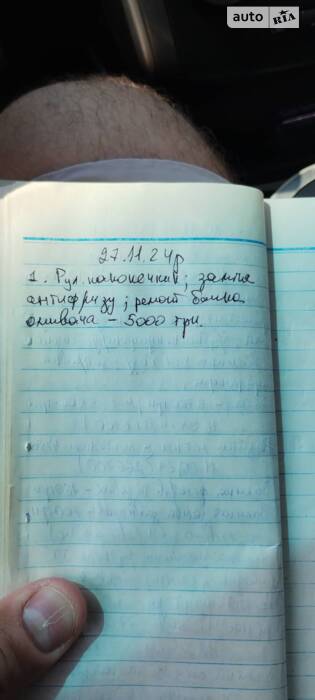 auto RIA
27.11.24р
1. Рул. наконечний; заміна
антифризу; ремонт бачка
омивача - 5000 грн.